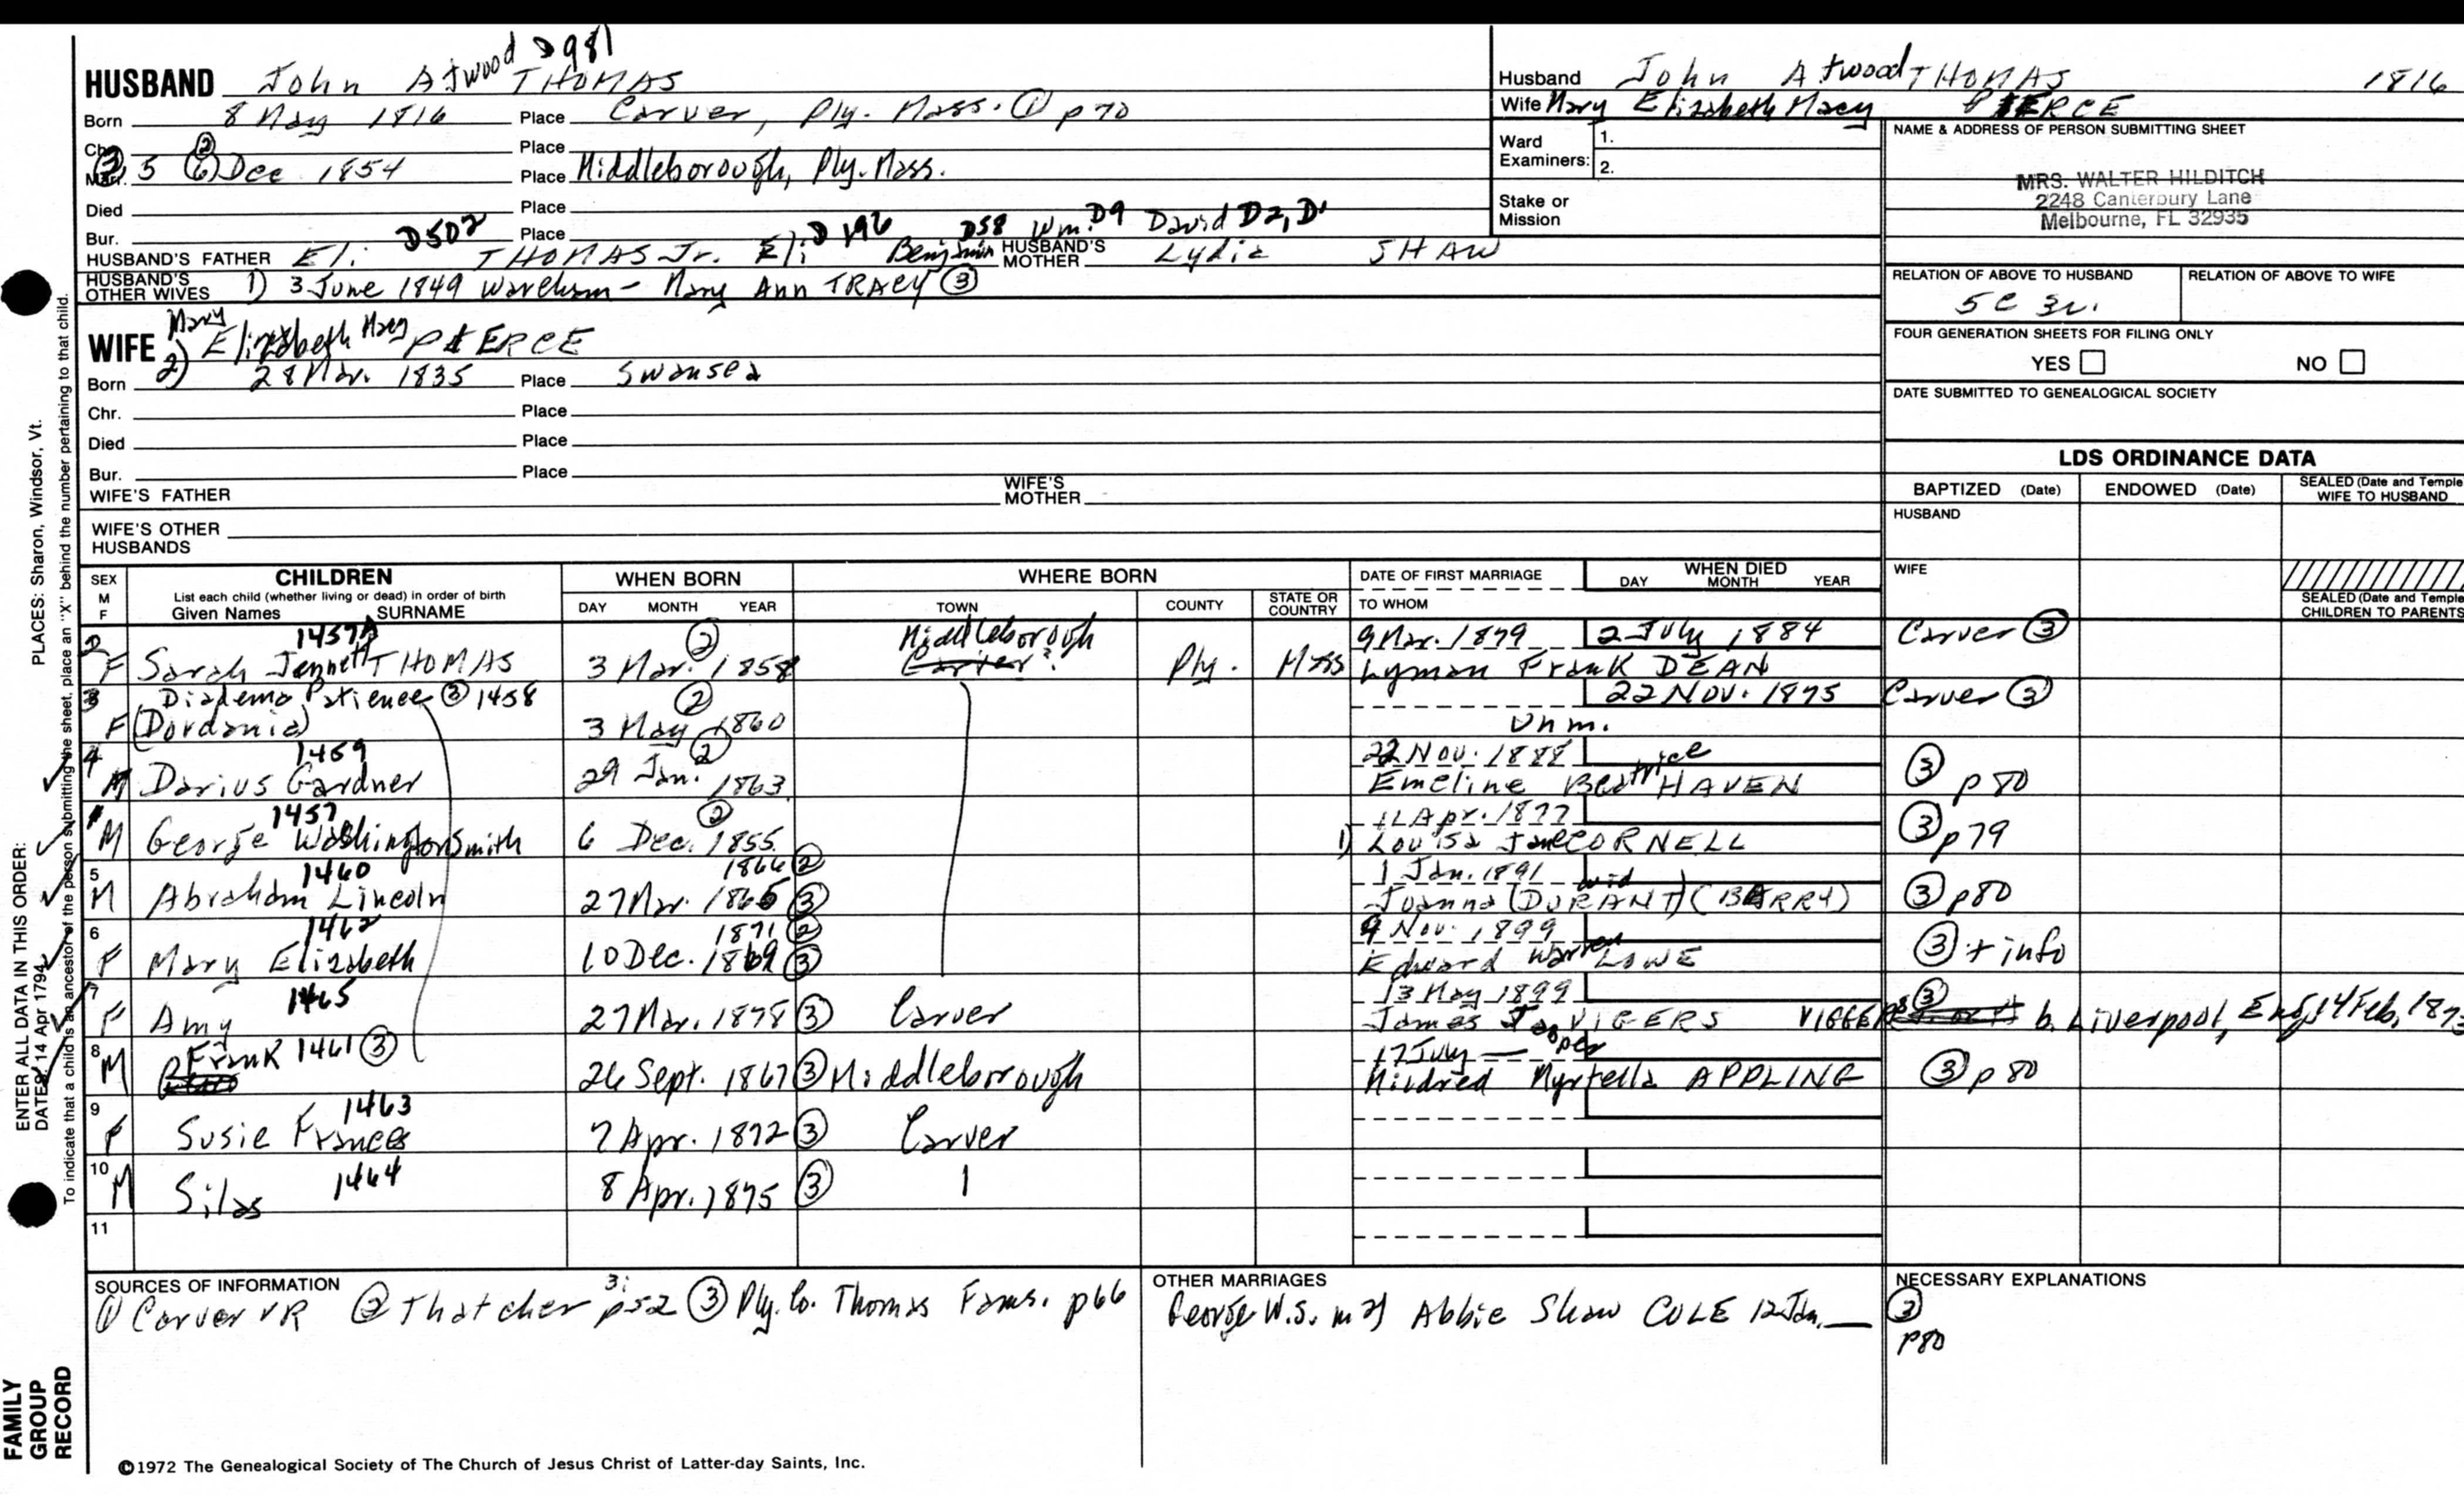 HUSBAND John Atwood THOMAS D981
Born 8 May 1816 Place Carver, Ply. Mass. ① p70
Chr. Place
Marr. ③ 5 ② (6) Dec 1854 Place Middleborough, Ply. Mass.
Died Place
Bur. Place
D502 D196 D58 Wm. D9 David D2, D1
HUSBAND'S FATHER Eli THOMAS Jr. Eli Benjamin HUSBAND'S MOTHER Lydia SHAW
HUSBAND'S OTHER WIVES 1) 3 June 1849 Wareham - Mary Ann TRACY ③
WIFE 2) Mary Elizabeth Macy PIERCE
Born 28 Mar. 1835 Place Swansea
Chr. Place
Died Place
Bur. Place
WIFE'S FATHER WIFE'S MOTHER
WIFE'S OTHER HUSBANDS
Husband John Atwood THOMAS 1816
Wife Mary Elizabeth Macy PIERCE
Ward Examiners: 1. 2.
Stake or Mission
NAME & ADDRESS OF PERSON SUBMITTING SHEET
MRS. WALTER HILDITCH
2248 Canterbury Lane
Melbourne, FL 32935
RELATION OF ABOVE TO HUSBAND RELATION OF ABOVE TO WIFE
5C 3r.
FOUR GENERATION SHEETS FOR FILING ONLY
YES NO
DATE SUBMITTED TO GENEALOGICAL SOCIETY
LDS ORDINANCE DATA
BAPTIZED (Date) ENDOWED (Date) SEALED (Date and Temple WIFE TO HUSBAND
HUSBAND
WIFE
SEALED (Date and Temple CHILDREN TO PARENTS
SEX M F CHILDREN List each child (whether living or dead) in order of birth Given Names SURNAME
WHEN BORN DAY MONTH YEAR
WHERE BORN TOWN COUNTY STATE OR COUNTRY
DATE OF FIRST MARRIAGE TO WHOM
WHEN DIED DAY MONTH YEAR
1457A ② Middleborough 9 Mar. 1879 2 July 1884 Carver ③
2 F Sarah Jennett THOMAS 3 Mar. 1858 Carver? Ply. Mass Lyman Frank DEAN
3 Diadema Patience ③ 1458 ② 22 Nov. 1875 Carver ③
F (Dordania) 3 May 1860 Unm.
4 1459 ② 22 Nov. 1888
M Darius Gardner 29 Jan. 1863 Emeline Beatrice HAVEN ③ p80
1 1457 ② 11 Apr. 1877
M George Washington Smith 6 Dec. 1855 1) Louisa Jane CORNELL ③ p79
5 1460 1866 ② 1 Jan. 1891 wid
M Abraham Lincoln 27 Mar. 1865 ③ Joanna (DURANT) (BARRY) ③ p80
6 1462 1871 ② 9 Nov. 1899
F Mary Elizabeth 10 Dec. 1869 ③ Edward Warren LOWE ③ + info
7 1465 13 May 1899
F Amy 27 Mar. 1878 ③ Carver James VIGERS VIGGERS ③ b. Liverpool, Eng 14 Feb. 187
8 Frank 1461 ③ 17 July
M 26 Sept. 1867 ③ Middleborough Mildred Myrtella APPLING ③ p80
9 1463
F Susie Frances 7 Apr. 1872 ③ Carver
10 1464
M Silas 8 Apr. 1875 ③
11
SOURCES OF INFORMATION
① Carver VR ② Thatcher 3: p52 ③ Ply. Co. Thomas Fams. p66
OTHER MARRIAGES
George W.S. m 2) Abbie Shaw COLE 12 Jan.
NECESSARY EXPLANATIONS
③
p80
©1972 The Genealogical Society of The Church of Jesus Christ of Latter-day Saints, Inc.
PLACES: Sharon, Windsor, Vt.
ENTER ALL DATA IN THIS ORDER:
DATES: 14 Apr 1794
To indicate that a child is an ancestor of the person submitting the sheet, place an "X" behind the number pertaining to that child.
FAMILY
GROUP
RECORD